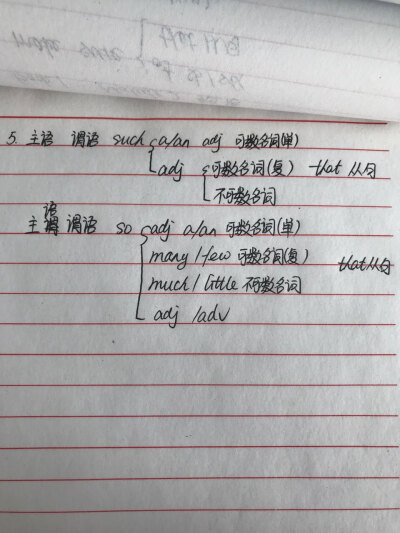 make sure
5. 主语 谓语 such a/an adj 可数名词(单)
adj 可数名词(复) that 从句
不可数名词
语
主谓 谓语 so adj a/an 可数名词(单)
many/few 可数名词(复) that从句
much/little 不可数名词
adj/adv